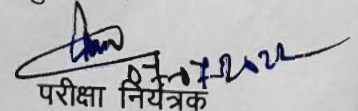 07-07-2022
परीक्षा नियंत्रक